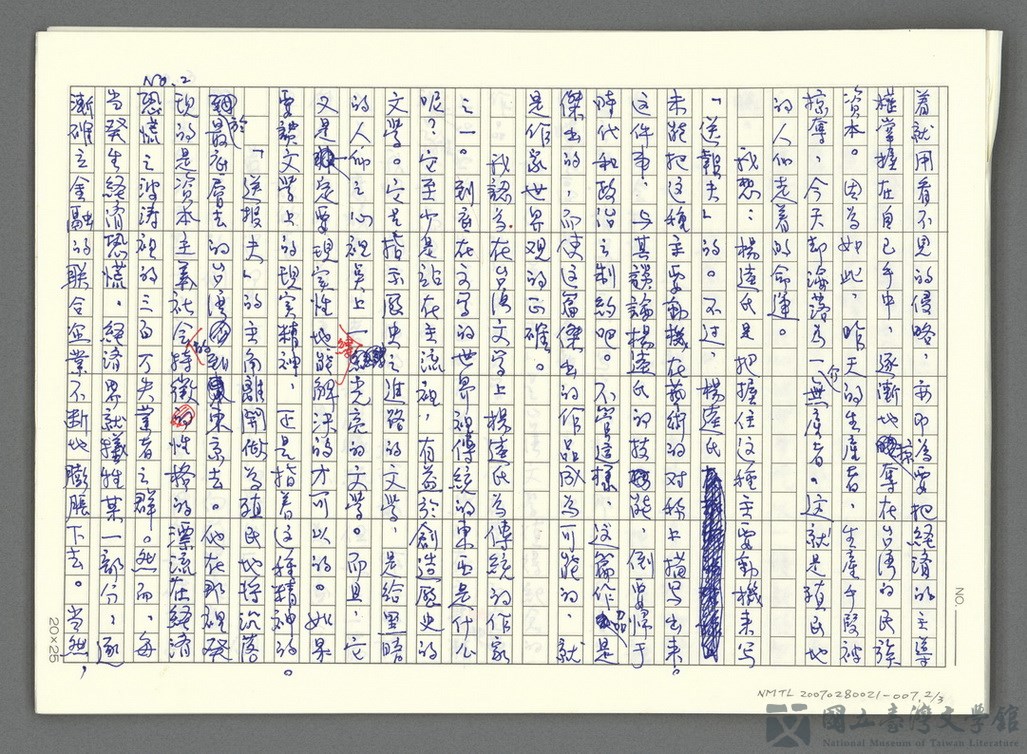 着就用看不見的侵略,亦即為要把經濟的主導
權掌握在自己手中,逐漸地掠奪在台灣的民族
資本。因為如此,昨天的生產者,生產手段被
掠奪,今天卻淪落為一介無產者。這就是殖民地
的人们走着的命運。
我想:楊逵氏是把握住這種主要動機来寫
「送報夫」的。不过,楊逵氏
未能把這種主要動機在藝術的对称上描写出来。
這件事,与其談論楊逵氏的技能,倒要歸于
時代和政治之制約吧。不管這樣,這篇作品是
傑出的,而使這篇傑出的作品成為可能的,就
是作家世界观的正確。
我認為在台湾文学上楊逵氏為傳統的作家
之一。到底在文学的世界裡傳統的東西是什么
呢?它至少是站在主流裡,有益於創造歷史的
文学。它是指示歷史之進路的文学,是給黑暗
的人们之心裡点上一縷光亮的文学。而且,它
又是一定要現实性地能解决的才可以的。如果
要談文学上的現实精神,正是指着這种精神的。
「送报夫」的主角離開做為殖民地掠沉落
於最底層去的台湾到東京去。他在那裡發
現的是資本主義社会的特徵的性格的漂流在經濟
恐慌之波涛裡的三百万失業者之群。然而,每
当發生經濟恐慌。經濟界就犧牲某一部分,逐
漸確立金融的联合企業不断地膨脹下去。当然,
NO.2
NO.
20×25
NMTL 20070280021-007, 2/3
國立臺灣文學館
National Museum of Taiwan Literature